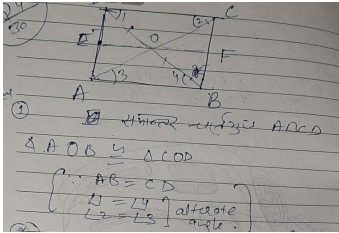 24
30
1
2
C
E
O
F
3
4
A
B
①
समान्तर चतुर्भुज ABCD
Δ AOB ≅ Δ COD
∵ AB = CD
∠1 = ∠4
∠2 = ∠3 ] alternate angle.